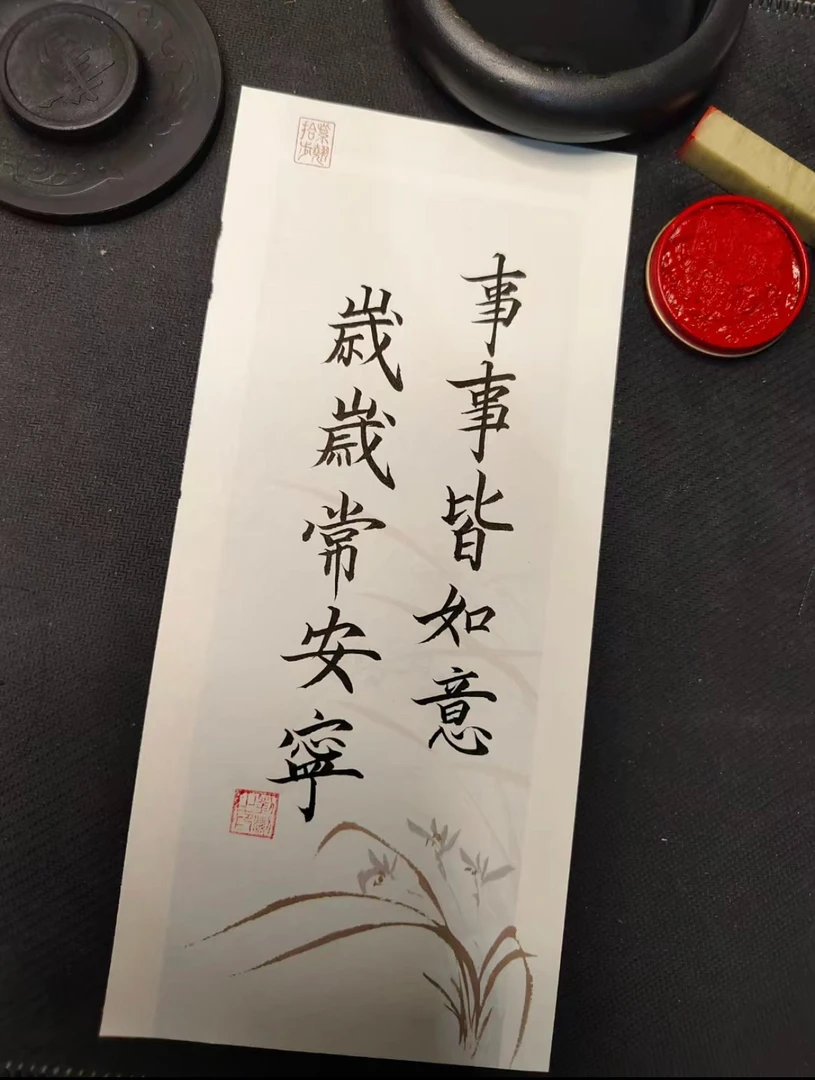 事事皆如意
歲歲常安寧